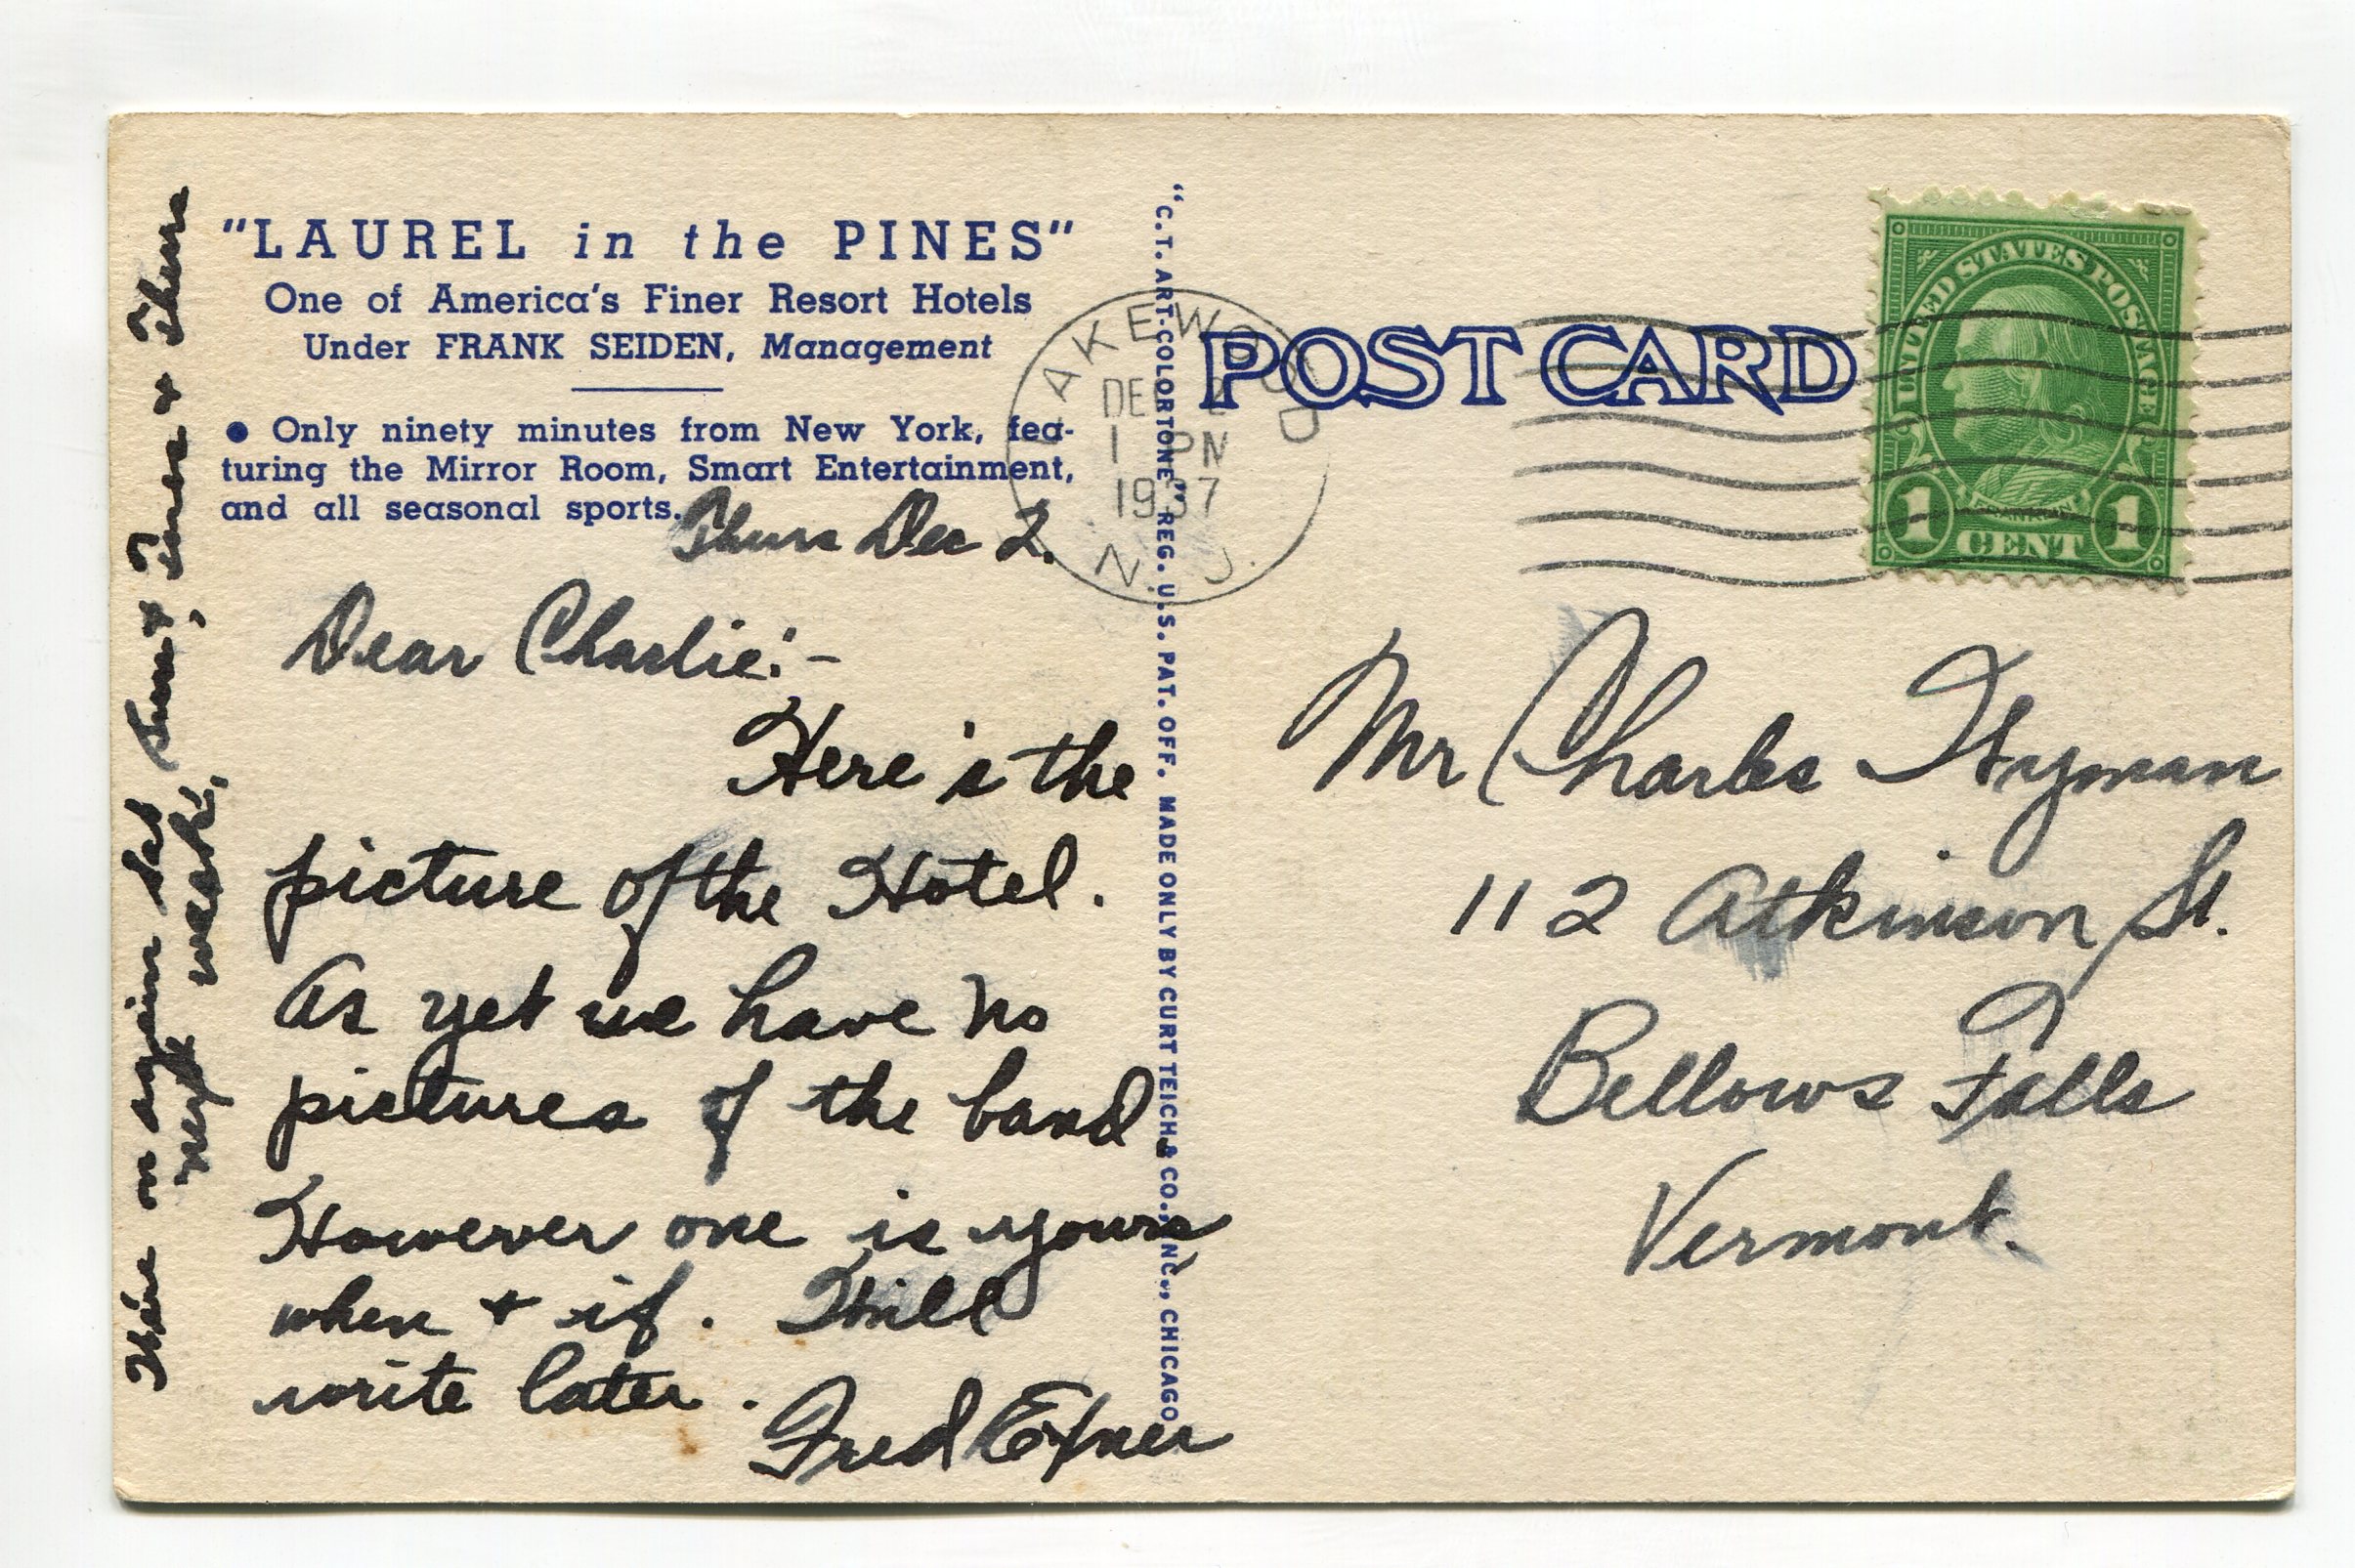 "LAUREL in the PINES"
One of America's Finer Resort Hotels
Under FRANK SEIDEN, Management
● Only ninety minutes from New York, fea-
turing the Mirror Room, Smart Entertainment,
and all seasonal sports.
Thurs Dec 2.
Dear Charlie:-
Here's the
picture of the Hotel.
As yet we have no
pictures of the band.
However one is yours
when + if. Will
write later.
Fred Exner
We're on again Sat Sun, + Tues + Thurs
next week.
"C.T. ART-COLORTONE" REG. U.S. PAT. OFF. MADE ONLY BY CURT TEICH & CO., INC., CHICAGO
POST CARD
LAKEWOOD
DEC 2
1 PM
1937
N. J.
UNITED STATES POSTAGE
FRANKLIN
1 CENT 1
Mr Charles Wyman
112 Atkinson St.
Bellows Falls
Vermont.